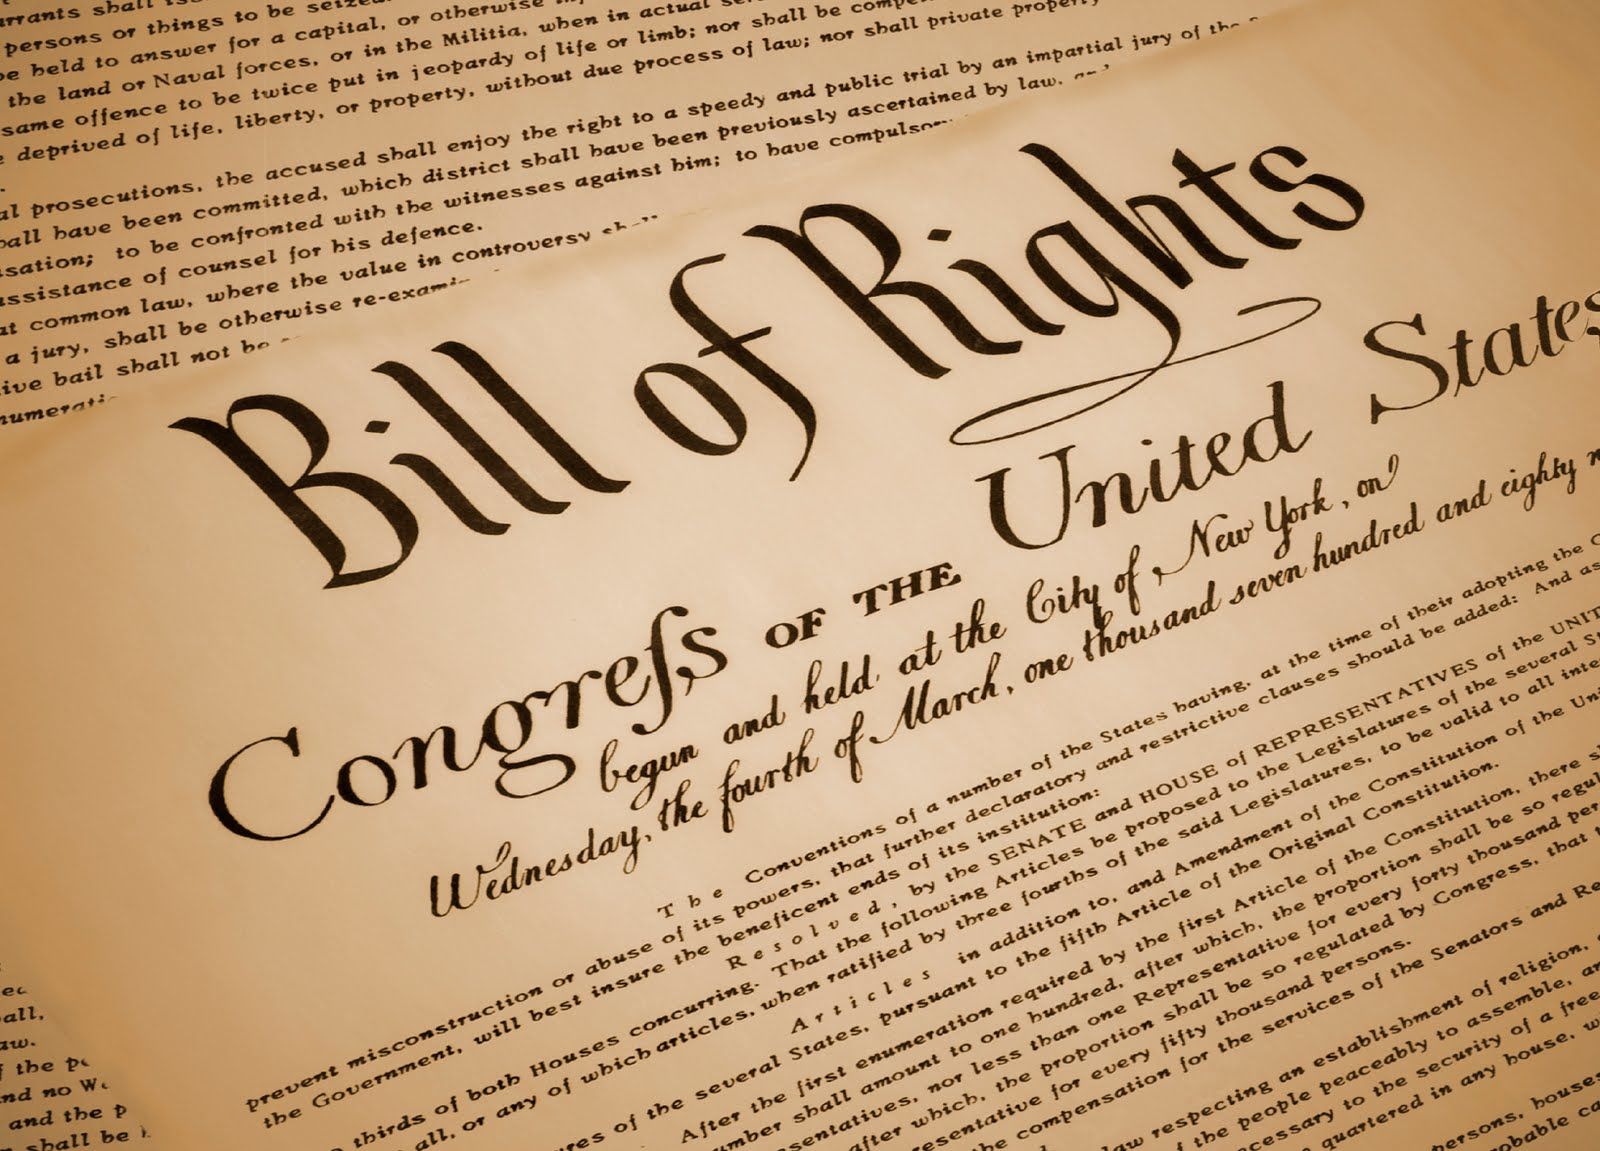 shall
persons or things to be seized
be held to answer for a capital, or otherwise
the land or Naval forces, or in the Militia, when in actual
same offence to be twice put in jeopardy of life or limb; nor shall be
deprived of life, liberty, or property, without due process of law; nor shall private property
prosecutions, the accused shall enjoy the right to a speedy and public trial by an impartial jury of the
have been committed, which district shall have been previously ascertained by law,
to be confronted with the witnesses against him; to have
assistance of counsel for his defence.
common law, where the value in controversy
a jury, shall be otherwise
bail shall not be
Bill of Rights
Congreſs OF THE United States
begun and held at the City of New York, on
Wednesday, the fourth of March, one thousand seven hundred and eighty
The Conventions of a number of the States having, at the time of their adopting the
prevent misconstruction or abuse of its powers, that further declaratory and restrictive clauses should be added: And as
the Government, will best insure the beneficent ends of its institution:
Resolved, by the SENATE and HOUSE of REPRESENTATIVES of the
thirds of both Houses concurring. That the following Articles be proposed to the Legislatures of the several
all, or any of which articles, when ratified by three fourths of the said Legislatures, to be valid to all
Articles in addition to, and Amendment of the Constitution of the
of the several States, pursuant to the fifth Article of the Original Constitution.
After the first enumeration required by the first Article of the Constitution, there
shall amount to one hundred, after which, the proportion shall be so
nor less than one Representative for every forty thousand
after which, the proportion shall be so regulated by Congress, that
for every fifty thousand persons.
the compensation for the services of the Senators and
law respecting an establishment of religion,
of the people peaceably to assemble,
to the security of a free
quartered in any house,
persons, houses
all,
the
and no
and the
shall be